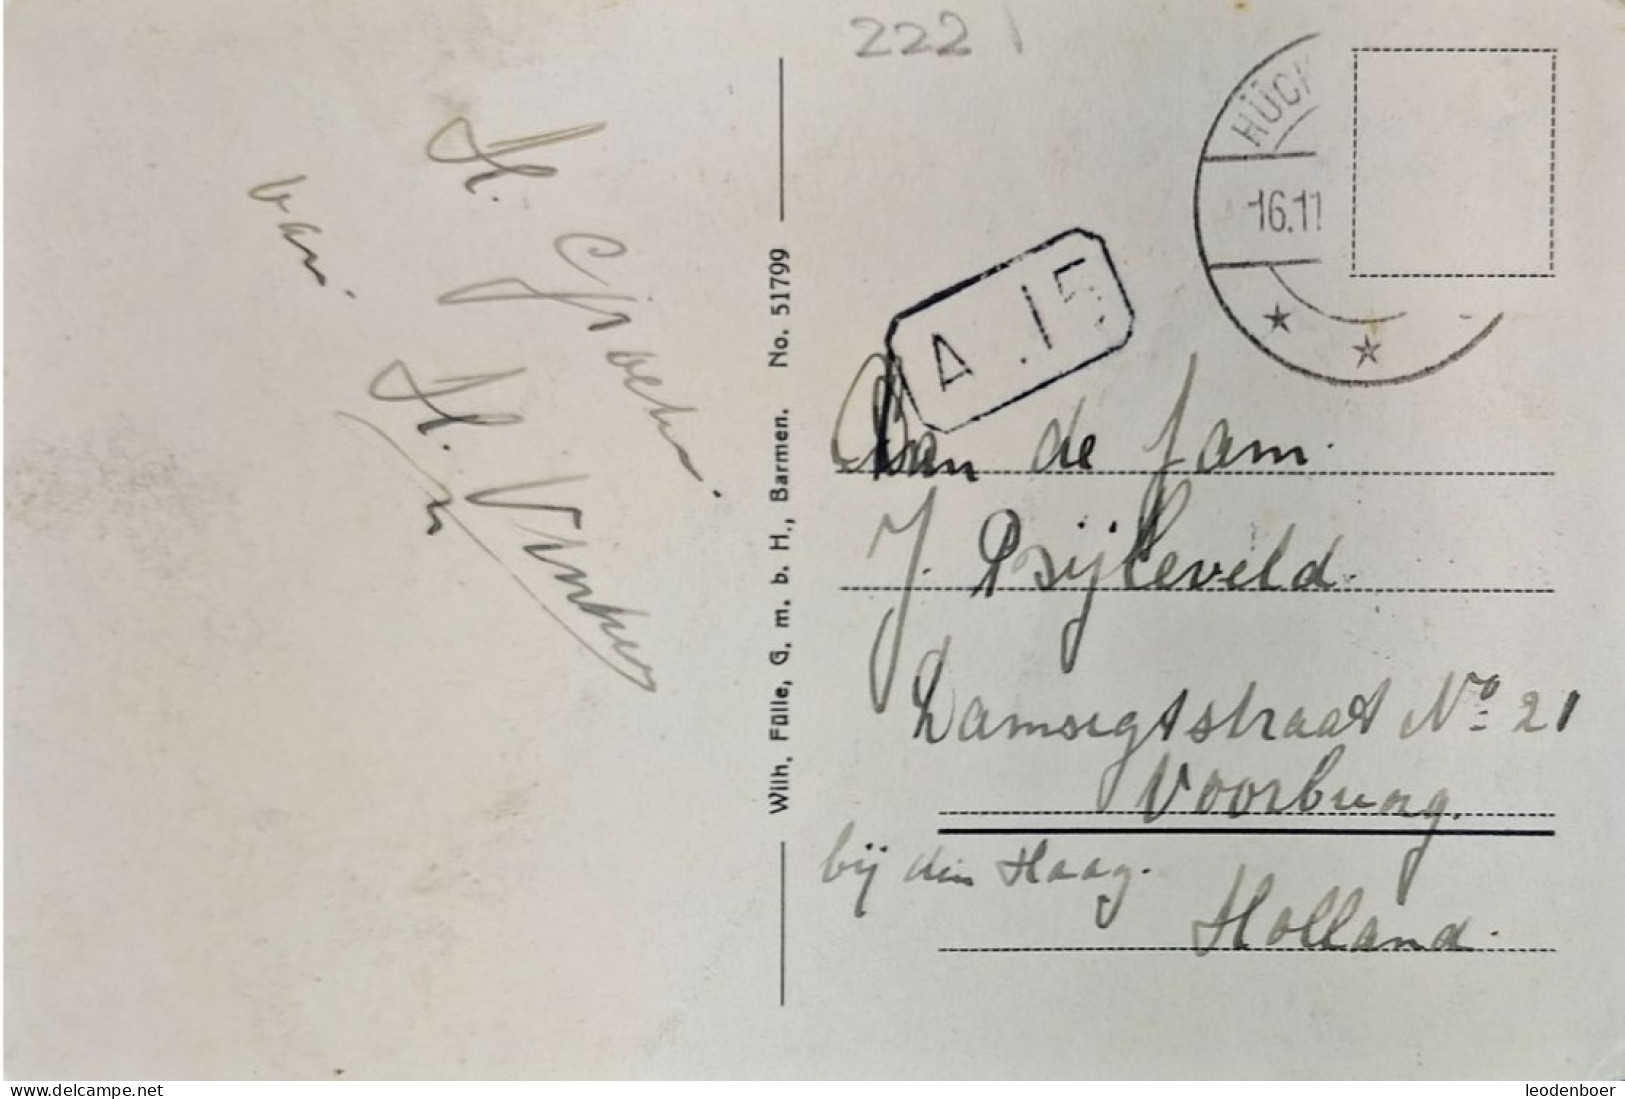 222
H.
van
H.
Wilh. Fülle, G. m. b. H., Barmen. No. 51799
HÜCK
16.11
A .15
Aan de fam.
J. Bijleveld.
Damsigtstraat No. 21
Voorburg.
bij den Haag.
Holland.
www.delcampe.net
leodenboer